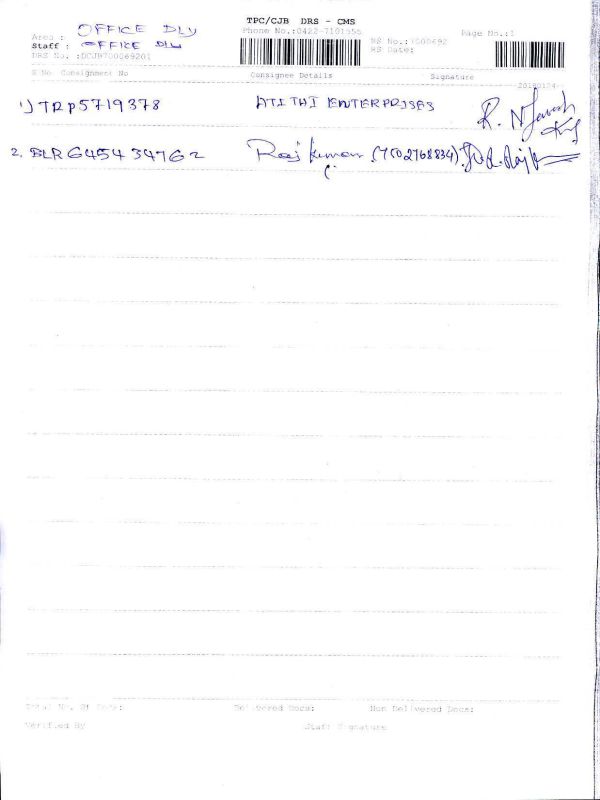 TPC/CJB DRS - CMS
Area : OFFICE DLY
Phone No.:0422-7101555
Page No.:1
Staff : OFFICE DLY
RS No.:7000692
DRS No. :DCJB700069201
RS Date:
S No Consignment No Consignee Details Signature
1) TRP5719378 ATITHI ENTERPRISES R.
2. BLR645434762 Raj Kumar
Total No. Of Docs: Delivered Docs: Non Delivered Docs:
Verified By Staff Signature